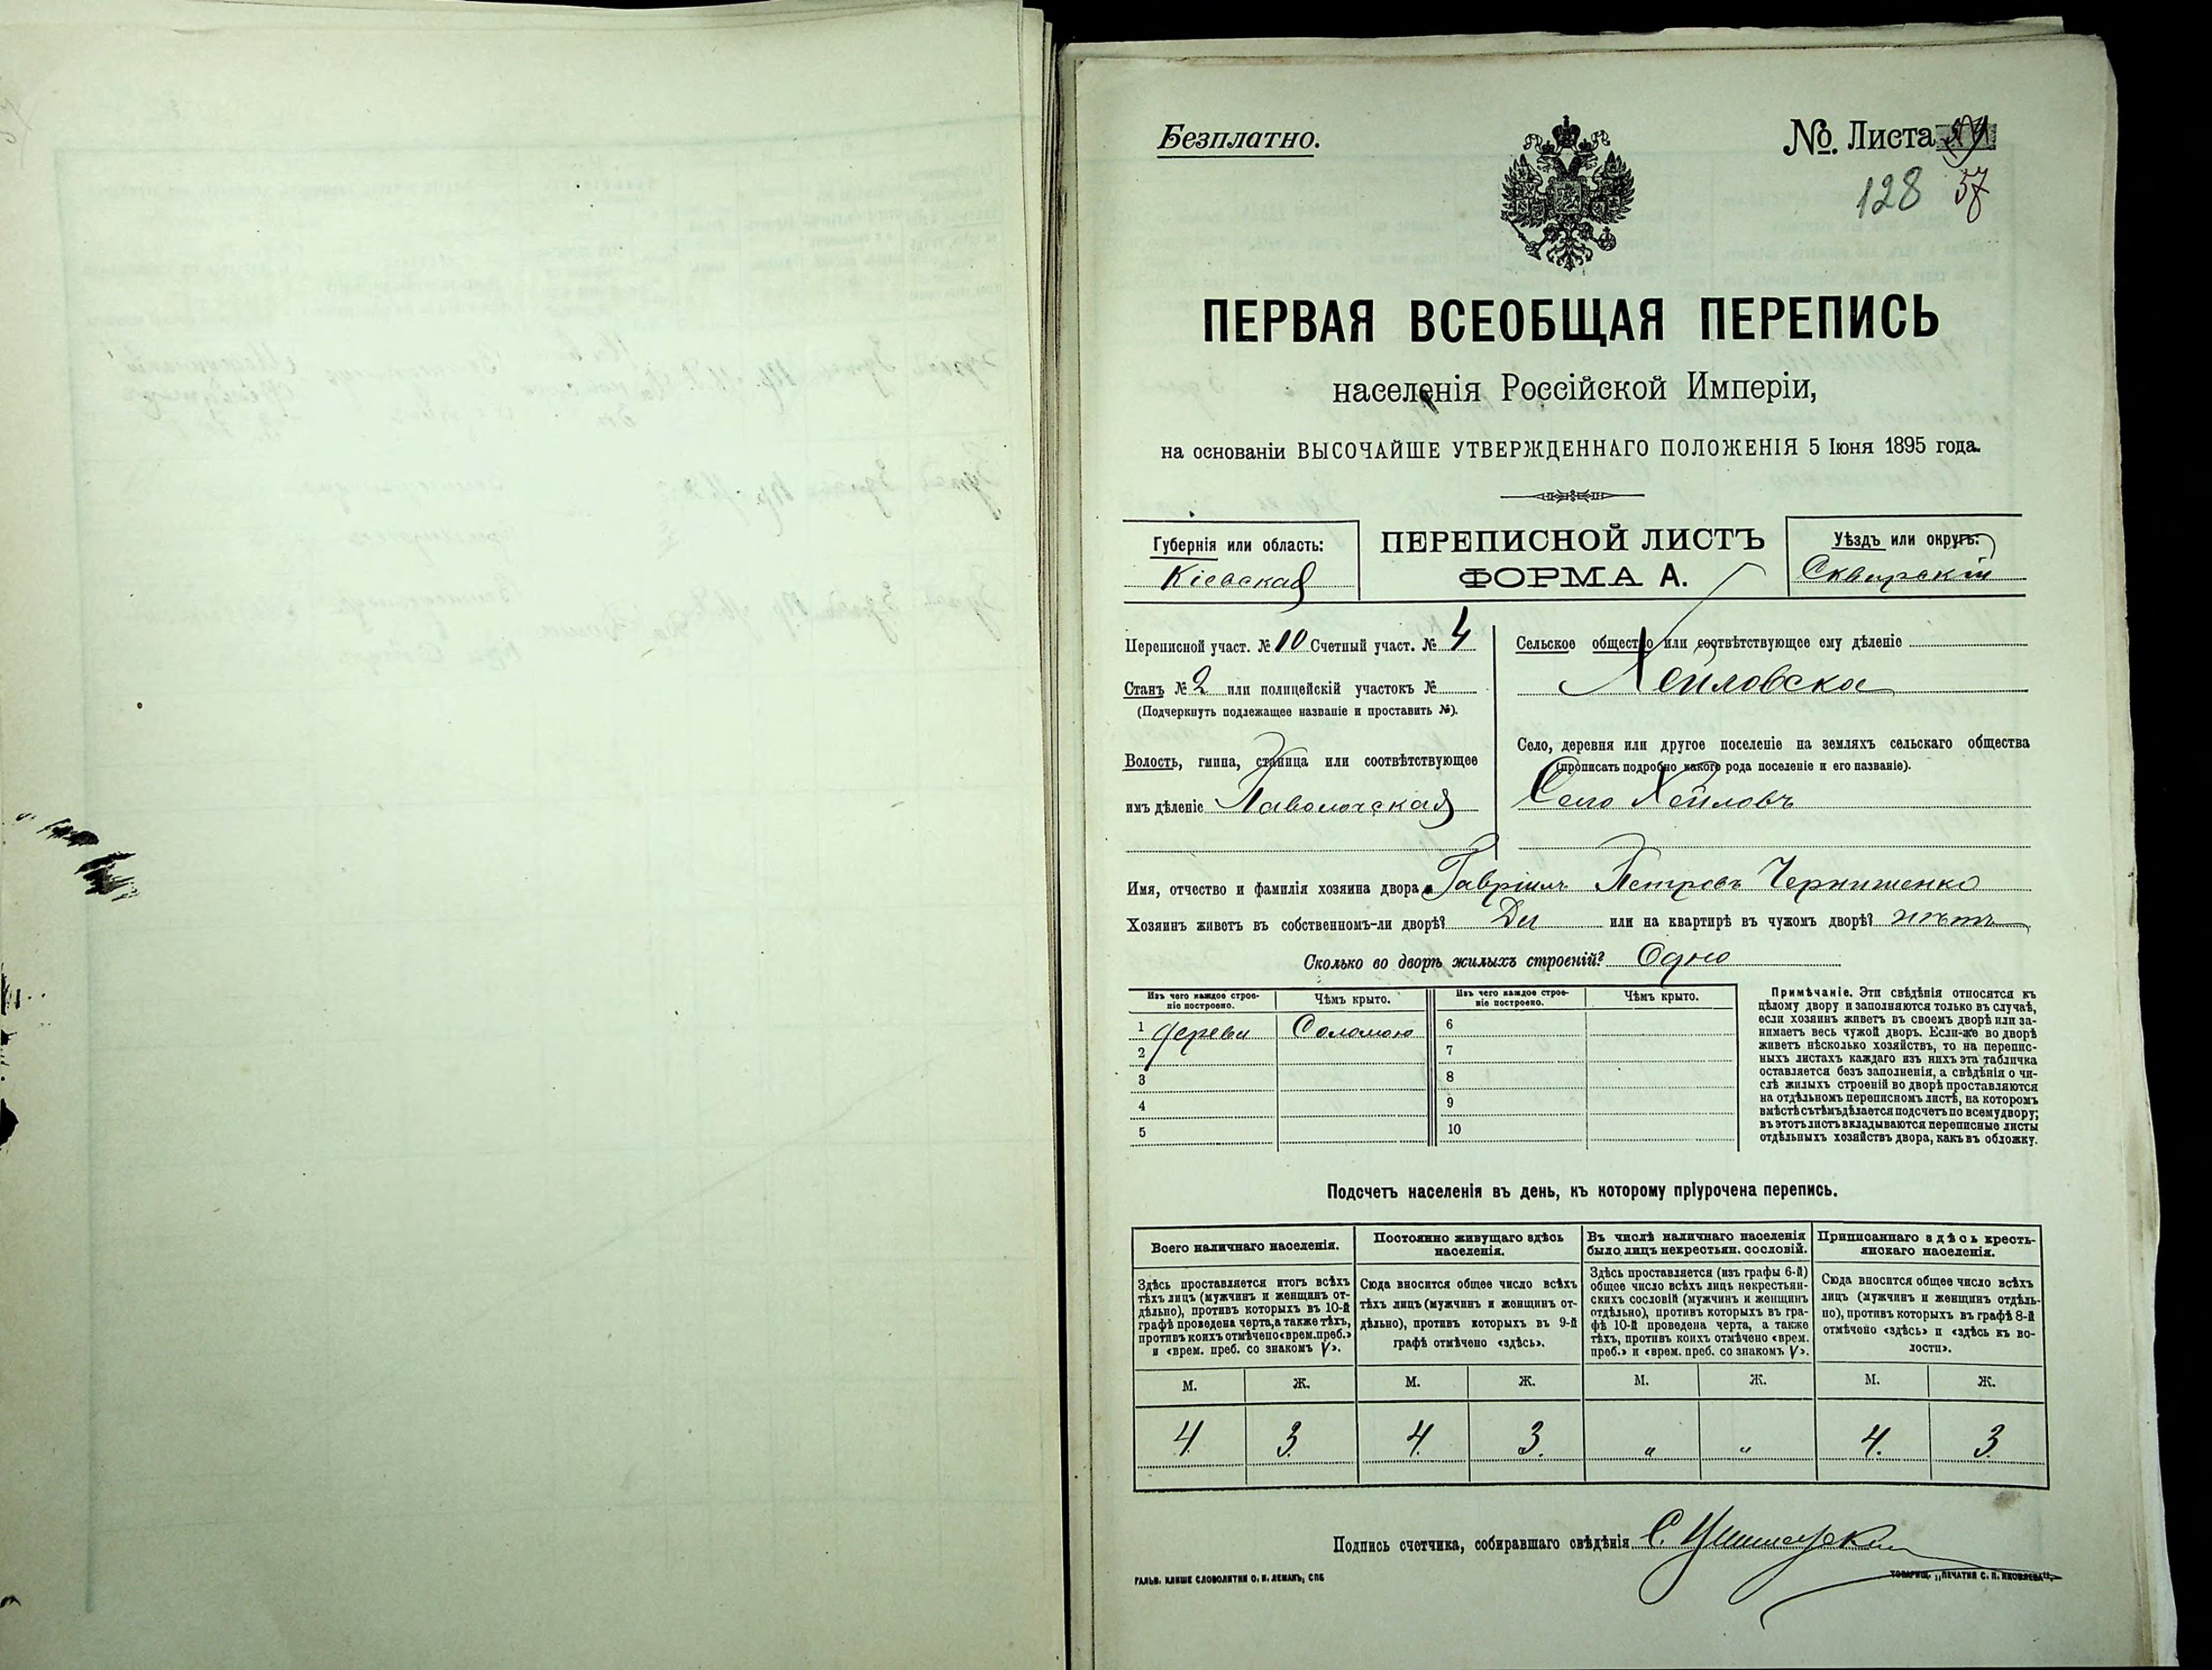 Безплатно.
№. Листа
128 57
ПЕРВАЯ ВСЕОБЩАЯ ПЕРЕПИСЬ
населенія Россійской Имперіи,
на основаніи ВЫСОЧАЙШЕ УТВЕРЖДЕННАГО ПОЛОЖЕНІЯ 5 Іюня 1895 года.
Губернія или область:
Кіевская
ПЕРЕПИСНОЙ ЛИСТЪ
ФОРМА А.
Уѣздъ или округъ:
Сквирскій
Переписной участ. № 10 Счетный участ. № 4
Станъ № 2 или полицейскій участокъ №
(Подчеркнуть подлежащее названіе и проставить №).
Волость, гмина, станица или соотвѣтствующее
имъ дѣленіе Паволочская
Сельское общество или соотвѣтствующее ему дѣленіе
Хейловское
Село, деревня или другое поселеніе на земляхъ сельскаго общества
(прописать подробно какого рода поселеніе и его названіе).
Село Хейловъ
Имя, отчество и фамилія хозяина двора Гавріилъ Петровъ Чернишенко
Хозяинъ живетъ въ собственномъ-ли дворѣ? Да или на квартирѣ въ чужомъ дворѣ? нѣтъ
Сколько во дворѣ жилыхъ строеній? Одно
Изъ чего каждое строе-
ніе построено.
Чѣмъ крыто.
Изъ чего каждое строе-
ніе построено.
Чѣмъ крыто.
1 дерева Соломою 6
2 7
3 8
4 9
5 10
Примѣчаніе. Эти свѣдѣнія относятся къ
цѣлому двору и заполняются только въ случаѣ,
если хозяинъ живетъ въ своемъ дворѣ или за-
нимаетъ весь чужой дворъ. Если-же во дворѣ
живетъ нѣсколько хозяйствъ, то на перепис-
ныхъ листахъ каждаго изъ нихъ эта табличка
оставляется безъ заполненія, а свѣдѣнія о чи-
слѣ жилыхъ строеній во дворѣ проставляются
на отдѣльномъ переписномъ листѣ, на которомъ
вмѣстѣ съ тѣмъ дѣлается подсчетъ по всему двору;
въ этотъ листъ вкладываются переписные листы
отдѣльныхъ хозяйствъ двора, какъ въ обложку.
Подсчетъ населенія въ день, къ которому пріурочена перепись.
Всего наличнаго населенія.
Здѣсь проставляется итогъ всѣхъ
тѣхъ лицъ (мужчинъ и женщинъ от-
дѣльно), противъ которыхъ въ 10-й
графѣ проведена черта, а также тѣхъ,
противъ коихъ отмѣчено «врем. преб.»
и «врем. преб. со знакомъ V».
Постоянно живущаго здѣсь
населенія.
Сюда вносится общее число всѣхъ
тѣхъ лицъ (мужчинъ и женщинъ от-
дѣльно), противъ которыхъ въ 9-й
графѣ отмѣчено «здѣсь».
Въ числѣ наличнаго населенія
было лицъ некрестьян. сословій.
Здѣсь проставляется (изъ графы 6-й)
общее число всѣхъ лицъ некрестьян-
скихъ сословій (мужчинъ и женщинъ
отдѣльно), противъ которыхъ въ гра-
фѣ 10-й проведена черта, а также
тѣхъ, противъ коихъ отмѣчено «врем.
преб.» и «врем. преб. со знакомъ V».
Приписаннаго здѣсь кресть-
янскаго населенія.
Сюда вносится общее число всѣхъ
лицъ (мужчинъ и женщинъ отдѣль-
но), противъ которыхъ въ графѣ 8-й
отмѣчено «здѣсь» и «здѣсь къ во-
лости».
М. Ж. М. Ж. М. Ж. М. Ж.
4. 3. 4. 3. " " 4. 3.
Подпись счетчика, собиравшаго свѣдѣнія С.
ГАЛЬВ. КЛИШЕ СЛОВОЛИТНИ О. И. ЛЕМАНЪ, СПБ
ТОВАРИЩ. „ПЕЧАТНЯ С. П. ЯКОВЛЕВА".